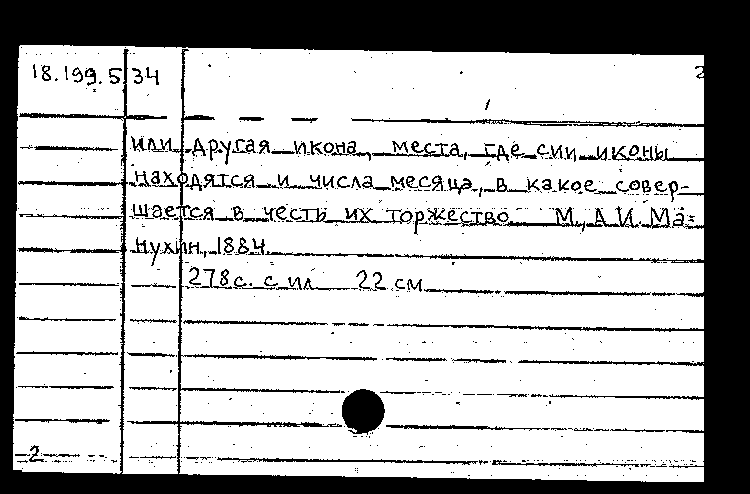 18.199.5.34 2
или другая икона, места, где сии иконы
находятся и числа месяца, в какое совер-
шается в честь их торжество. М., А.И. Ма-
нухин, 1884.
278 с. с ил 22 см
2